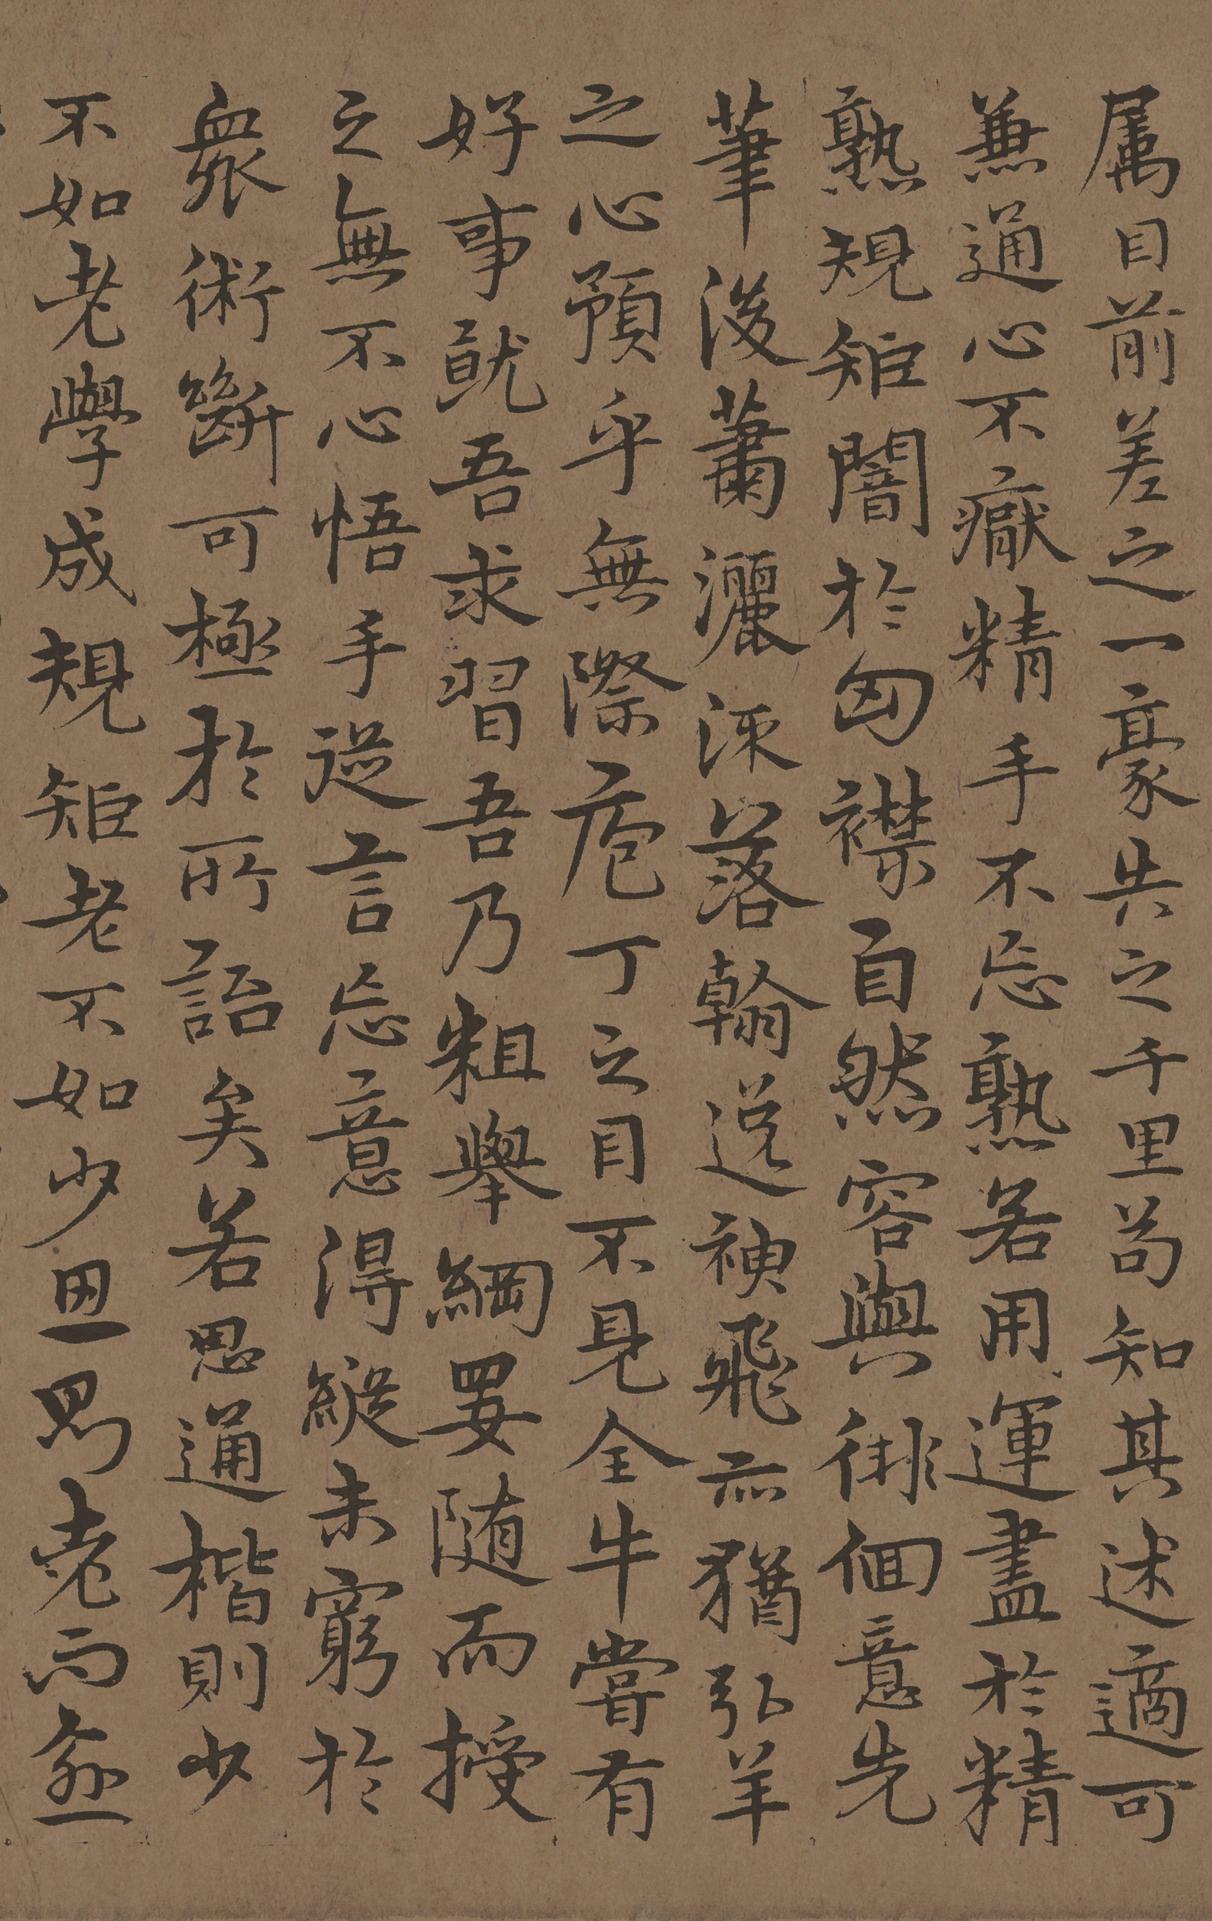 属目前差之一豪失之千里苟知其述適可
兼通心不猒精手不忘熟若用運盡於精
熟規矩闇於匈襟自然容與徘佪意先
筆後蕭灑流落翰逸神飛亦猶弘羊
之心預乎無際庖丁之目不見全牛嘗有
好事就吾求習吾乃粗舉綱要随而授
之無不心悟手從言忘意得縱未窮於
衆術斷可極於所詣矣若思通楷則少
不如老學成規矩老不如少思則老而愈